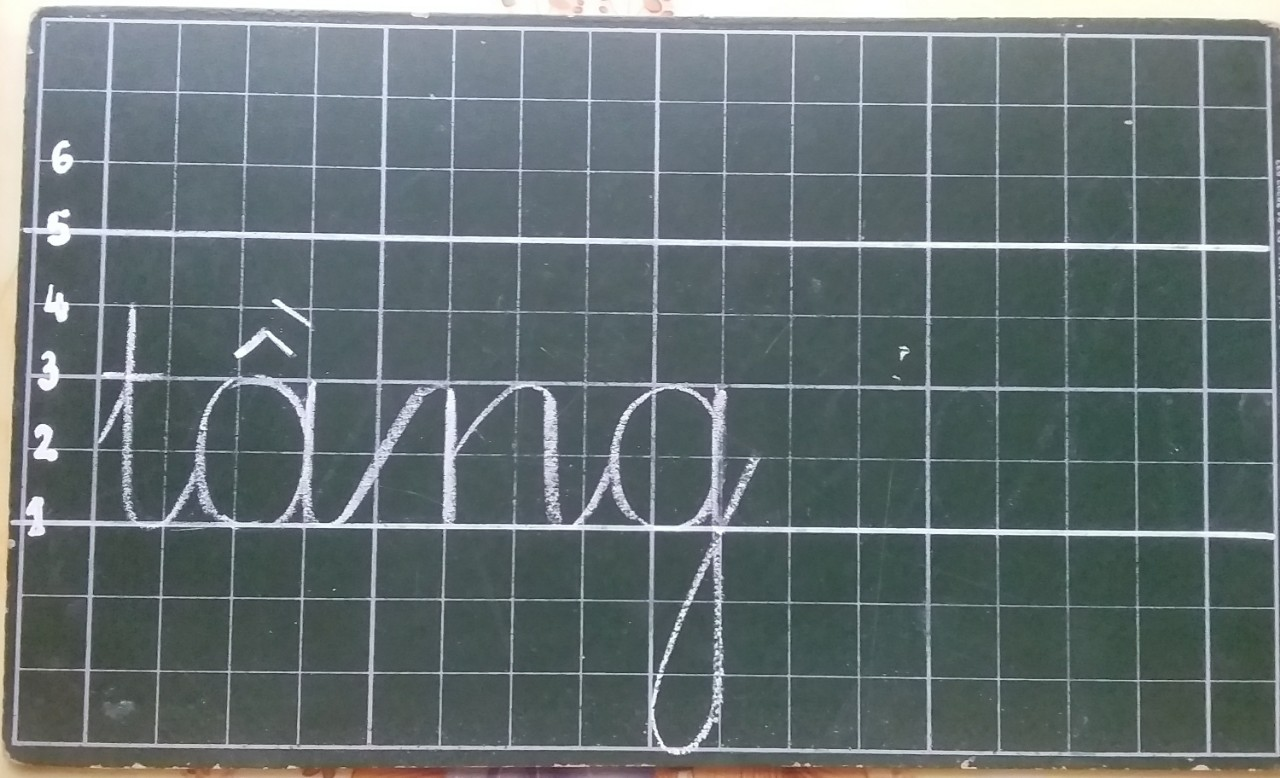 6
5
4
3
2
1
tầng